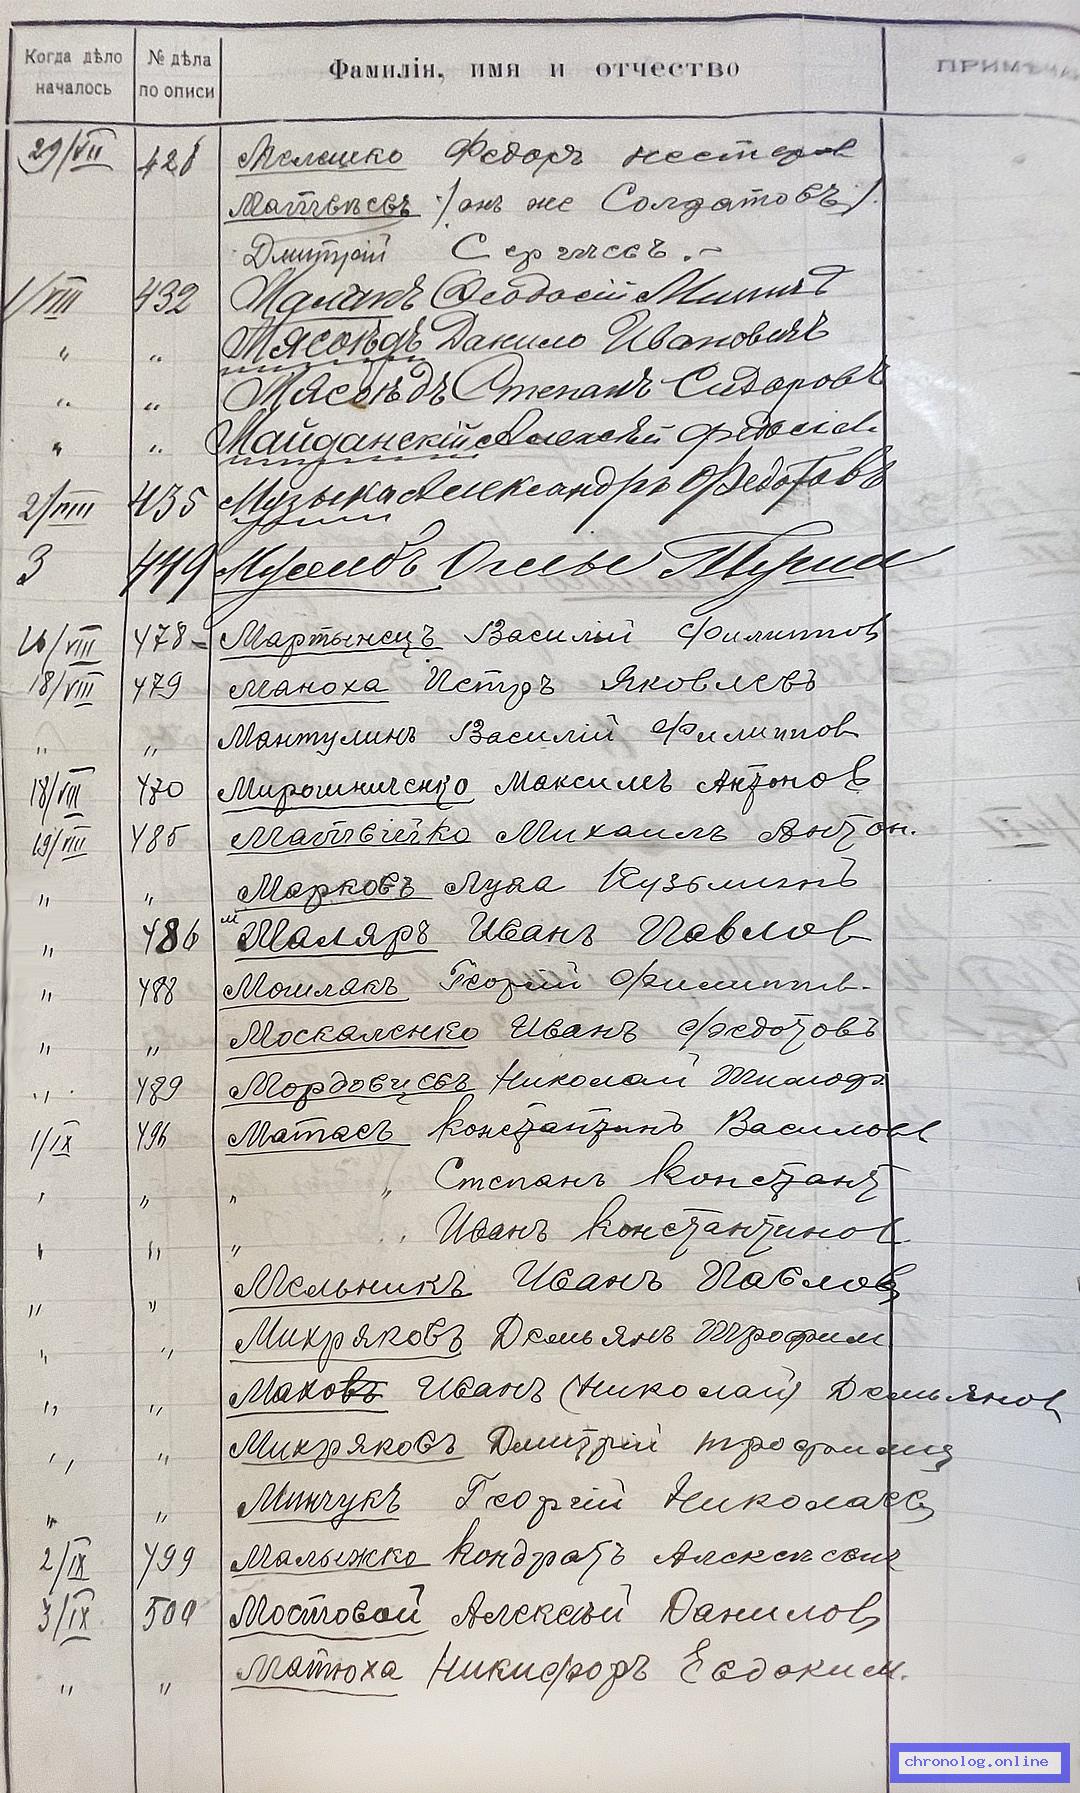 Когда дѣло началось № дѣла по описи Фамилія, имя и отчество ПРИМѢЧА
29/VII 428 Мелешко Федоръ Нестеров
Матвѣевъ /онъ же Солдатовъ/.
Дмитрій Сергѣевъ.-
1/VIII 432 Маланъ Феодосій
" " Мясоѣдъ Данило Ивановичъ
" " Мясоѣдъ Степанъ Сидоровъ
" " Майданскій Алексѣй Федосіев
2/VIII 435 Музыка Александръ Федотовъ
3 449
16/VIII 478 Мартынецъ Василій Филиппов
18/VIII 479 Маноха Петръ Яковлевъ
" " Мантулинъ Василій Филиппов
18/VIII 470 Мирошниченко Максимъ Антонов
19/VIII 485 Матвѣйко Михаилъ Антон.
" " Марковъ Лука Кузьминъ
" 486 м Маляръ Иванъ Павлов
" 488 Мошлякъ Георгій Филиппов.
" " Москаленко Иванъ Федотовъ
" 489 Мордовцевъ Николай Тимоф
1/IX 496 Матасъ Константинъ Василов
" " " " Степанъ Констант 
" " " " Иванъ Константинов
" " Мельникъ Иванъ Павлов
" " Михряковъ Демьянъ Трофим
" " Маховъ Иванъ (Николай) Демьянов
" " Михряковъ Дмитрій Трофимов
" " Минчукъ Георгій Николаев
2/IX 499 Малыжко Кондратъ Алексѣевич
3/IX 500 Мостовой Алексѣй Данилов
" " Матюха Никифоръ Евдоким.
chronolog.online